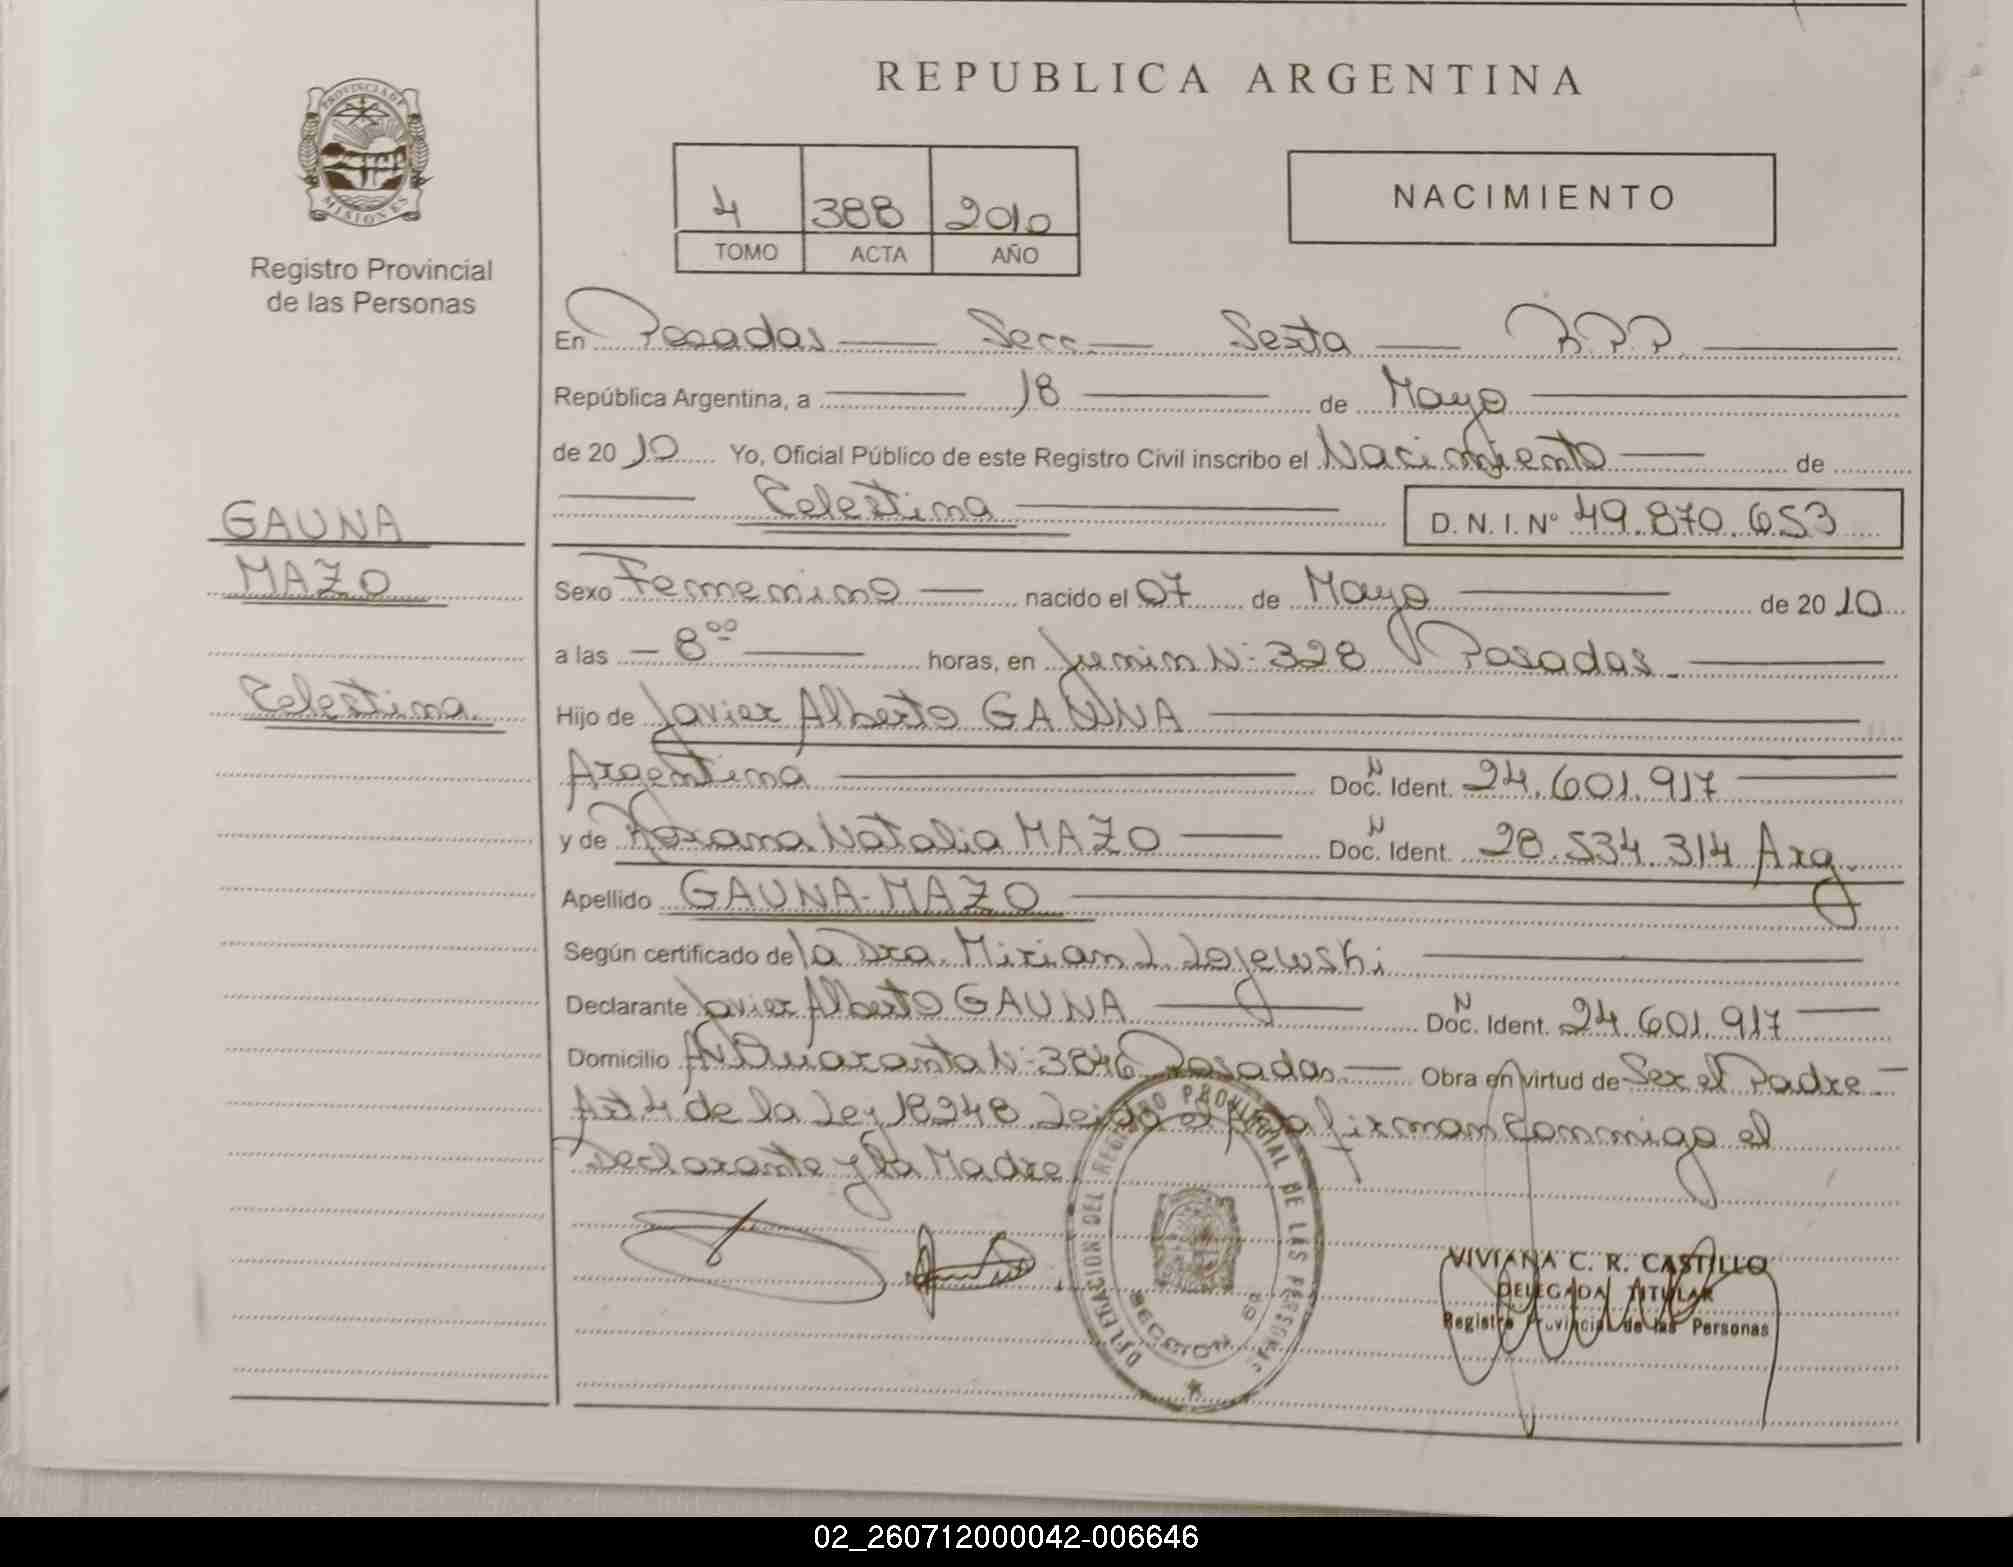 REPUBLICA ARGENTINA
PROVINCIA DE
MISIONES
Registro Provincial
de las Personas
4 388 2010
TOMO ACTA AÑO
NACIMIENTO
En Posadas Secc. Sexta R.P.P.
República Argentina, a 18 de Mayo
de 2010 Yo, Oficial Público de este Registro Civil inscribo el Nacimiento de
Celestina D.N.I. Nº 49.870.653
GAUNA
MAZO
Celestina
Sexo Femenino nacido el 07 de Mayo de 2010
a las 8 00 horas, en Junin N: 328 Posadas
Hijo de Javier Alberto GAUNA
Argentina Doc. N Ident. 24.601.917
y de Roxana Natalia MAZO Doc. N Ident. 28.534.314 Arg.
Apellido GAUNA-MAZO
Según certificado de la Dra. Mirian L. Lojewski
Declarante Javier Alberto GAUNA Doc. N Ident. 24.601.917
Domicilio Av Quaranta N: 3846 Posadas. Obra en virtud de Ser el Padre
Art 4 de la Ley 18248. Leida el Acta firman conmigo el
Declarante y la Madre
DELEGACION DEL REGISTRO PROVINCIAL DE LAS PERSONAS
SECCION 6a
VIVIANA C. R. CASTILLO
DELEGADA TITULAR
Registro Provincial de las Personas
02_260712000042-006646